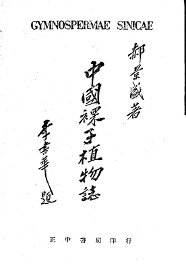 GYMNOSPERMAE SINICAE
郝景盛著
中國裸子植物誌
題
正中書局印行